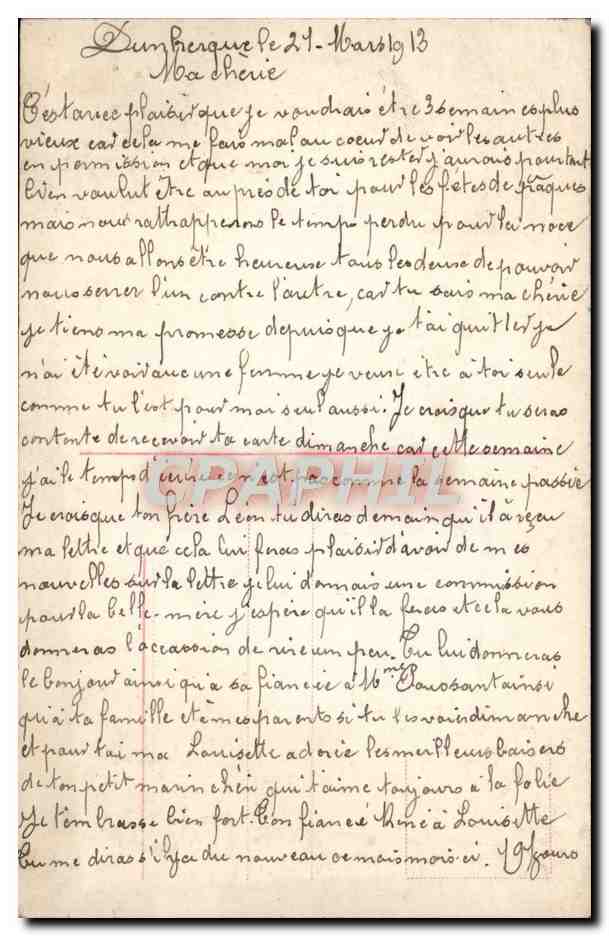 Dunkerque le 21 - Mars 1913
Ma chèrie
C'est avec plaisir que je voudrais être 3 semaines plus
vieux car cela me fais mal au coeur de voir les autres
en permission et que moi je suis rester j'aurais pourtant
bien voulut être au près de toi pour les fêtes de Pâques
mais nous rattapperons le temps perdu pour la noce
que nous allons être heureuse tous les deuse de pouvoir
nous serrer l'un contre l'autre, car tu sais ma chérie
je tiens ma promesse depuis que je t'ai quitter je
n'ai été voir aucune femme je veuse être à toi seule
comme tu l'est pour moi seul aussi. Je crois que tu seras
contente de recevoir ta carte dimanche car cette semaine
j'ai le temps d'écrire con est pas comme la semaine passée
Je crois que ton frère Léon tu diras demain qu'il à reçu
ma lettre et que cela lui feras plaisir d'avoir de mes
nouvelles sur la lettre je lui donnais une commission
pour la belle-mère j'espère qu'il la feras et cela vous
donneras l'accassion de rire un peu. Tu lui donneras
le bonjour ainsi qu'a sa fiancée à Mme Poussant ainsi
qu'à ta famille et à mes parents si tu les vois dimanche
et pour toi ma Louisette adorée les meilleurs baisers
de ton petit marin chéri qui t'aime toujours à la folie
Je t'embrasse bien fort. Ton fiancé René à Louisette
Tu me diras s'il y a du nouveau ce mois ci. 19 jours
CPAPHIL